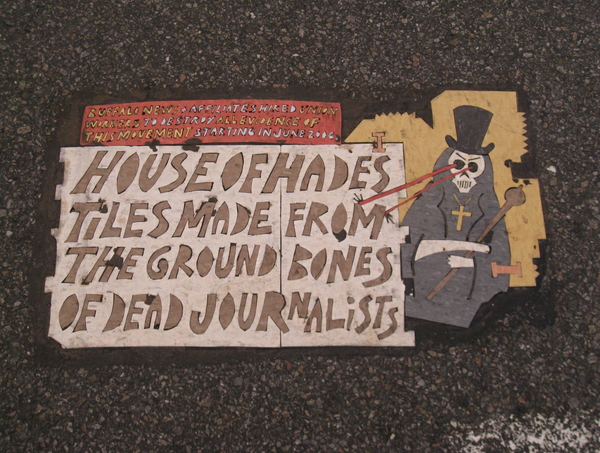 BUFFALO NEWS & AFFILIATES HIRED UNION
WORKERS TO DESTROY ALL EVIDENCE OF
THIS MOVEMENT STARTING IN JUNE 2006.
HOUSE OF HADES
TILES MADE FROM
THE GROUND BONES
OF DEAD JOURNALISTS